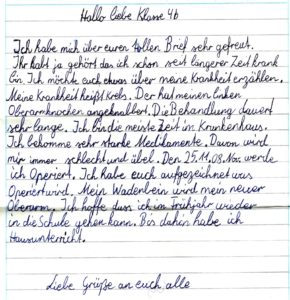 Hallo liebe Klasse 4b
Ich habe mich über euren tollen Brief sehr gefreut.
Ihr habt ja gehört das ich schon seit längerer Zeit krank
bin. Ich möchte euch etwas über meine Krankheit erzählen.
Meine Krankheit heißt Krebs. Der hat meinen linken
Oberarmknochen angeknabbert. Die Behandlung dauert
sehr lange. Ich bin die meiste Zeit im Krankenhaus.
Ich bekomme sehr starke Medikamente. Davon wird
mir immer schlecht und übel. Den 25.11.08 werde
ich Operiert. Ich habe euch aufgezeichnet was
Operiert wird. Mein Wadenbein wird mein neuer
Oberarm. Ich hoffe dass ich im Frühjahr wieder
in die Schule gehen kann. Bis dahin habe ich
Hausunterricht.
Liebe Grüße an euch alle